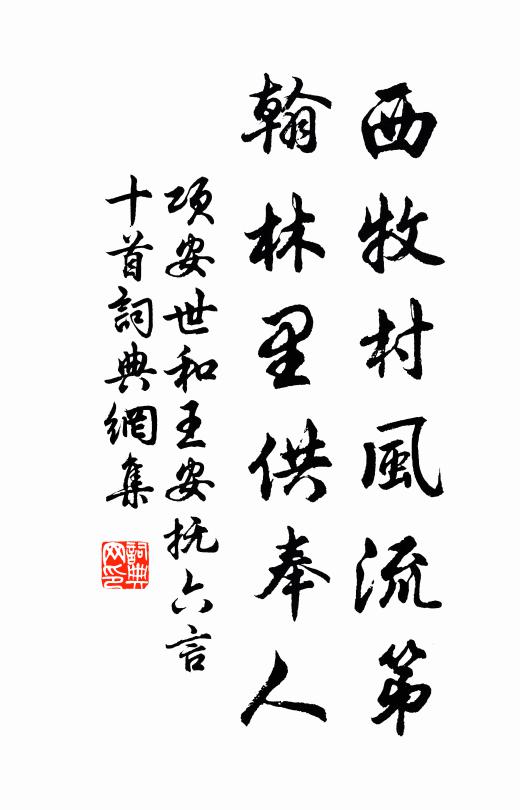 西牧村風流第
翰林里供奉人
項安世和王安抚六言
十首詞典網集
詞典网印